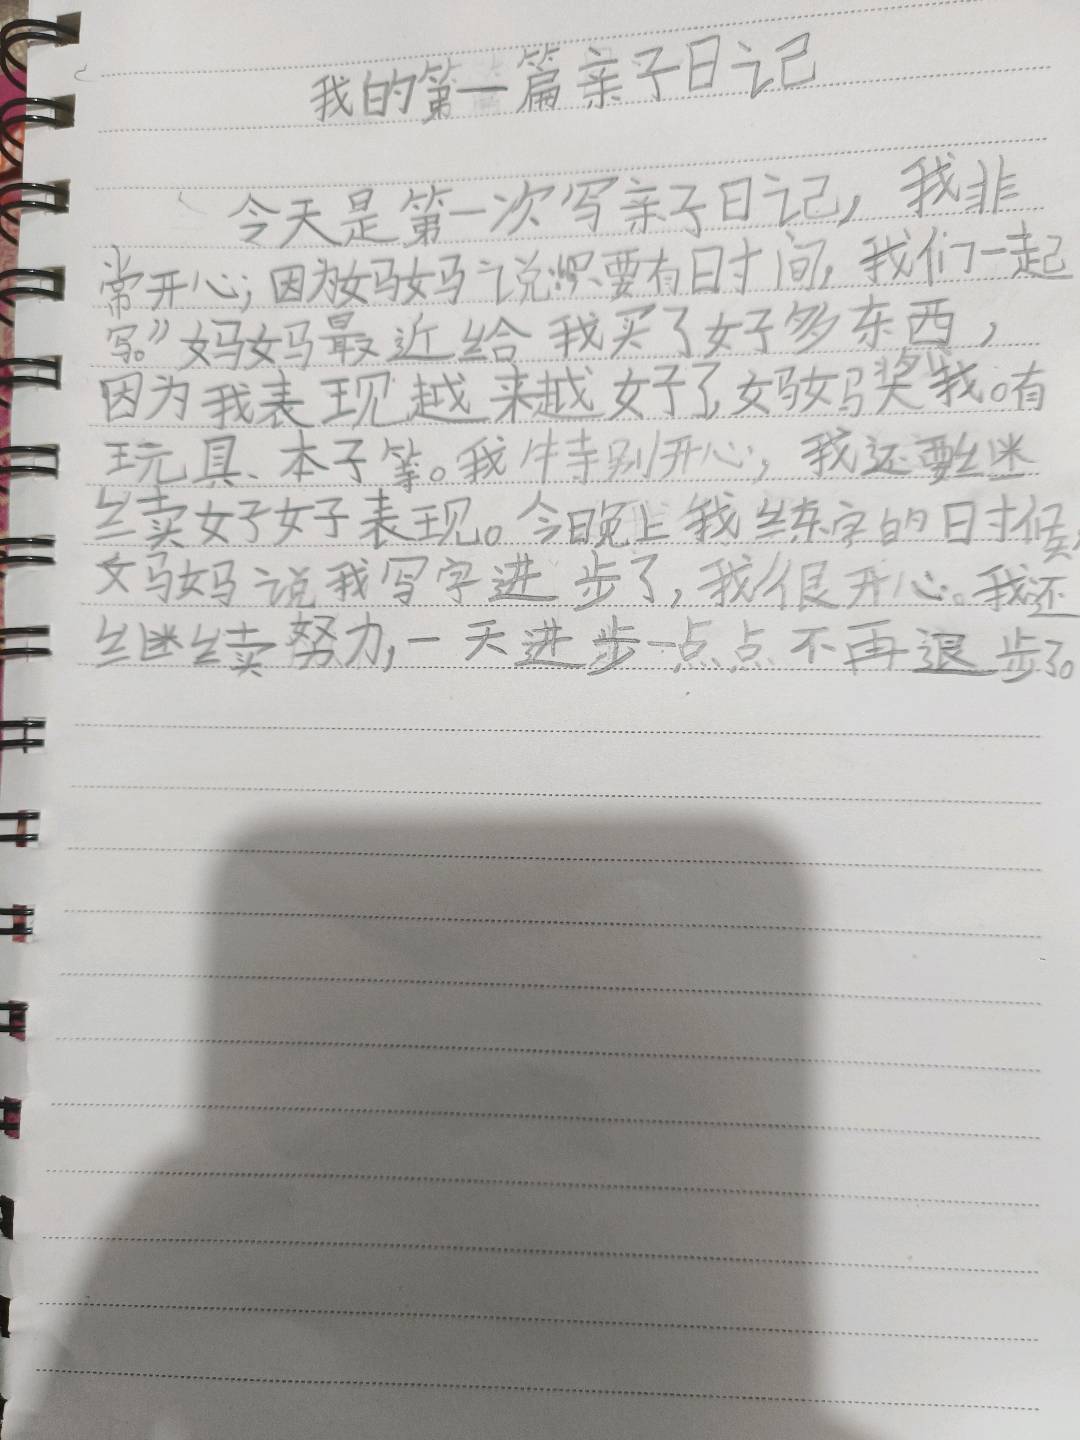 我的第一篇亲子日记
今天是第一次写亲子日记，我非
常开心；因为妈妈说“只要有时间，我们一起
写。”妈妈最近给我买了好多东西，
因为我表现越来越好了，妈妈奖我。有
玩具、本子等。我特别开心，我还要继
续好好表现。今晚上我练字的时候，
妈妈说我写字进步了，我很开心。我还
继续努力，一天进步一点点不再退步了。